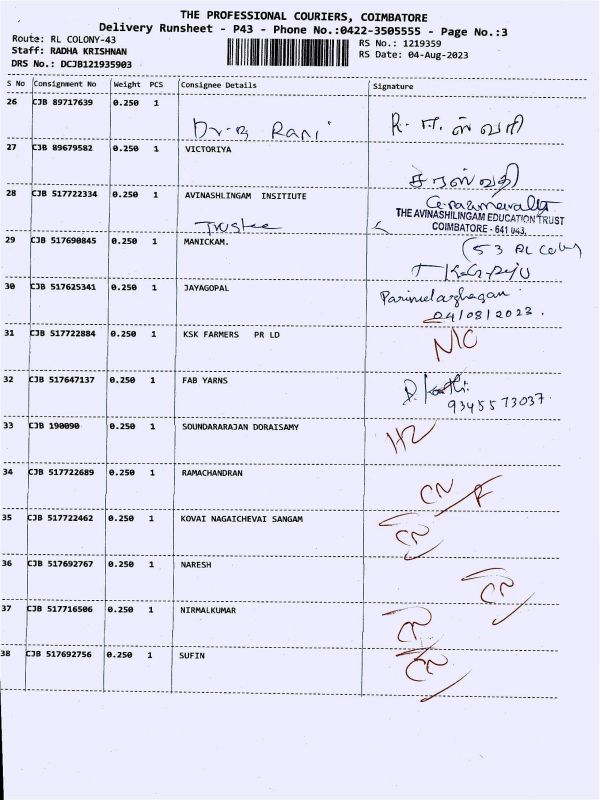 THE PROFESSIONAL COURIERS, COIMBATORE
Delivery Runsheet - P43 - Phone No.:0422-3505555 - Page No.:3
Route: RL COLONY-43
RS No.: 1219359
Staff: RADHA KRISHNAN
RS Date: 04-Aug-2023
DRS No.: DCJB121935903
S No Consignment No Weight PCS Consignee Details Signature
26 CJB 89717639 0.250 1
Dr. R. Rani R.
27 CJB 89679582 0.250 1 VICTORIYA
சரஸ்வதி
28 CJB 517722334 0.250 1 AVINASHLINGAM INSITIUTE
Trustee
THE AVINASHILINGAM EDUCATION TRUST
COIMBATORE - 641 043.
29 CJB 517690845 0.250 1 MANICKAM.
(53 RL colony
30 CJB 517625341 0.250 1 JAYAGOPAL
Parimelazhagan
04/08/2023.
31 CJB 517722884 0.250 1 KSK FARMERS PR LD
N/C
32 CJB 517647137 0.250 1 FAB YARNS
9345573037.
33 CJB 190090 0.250 1 SOUNDARARAJAN DORAISAMY
34 CJB 517722689 0.250 1 RAMACHANDRAN
CN
35 CJB 517722462 0.250 1 KOVAI NAGAICHEVAI SANGAM
CN
36 CJB 517692767 0.250 1 NARESH
CN
37 CJB 517716506 0.250 1 NIRMALKUMAR
CN
38 CJB 517692756 0.250 1 SUFIN
CN